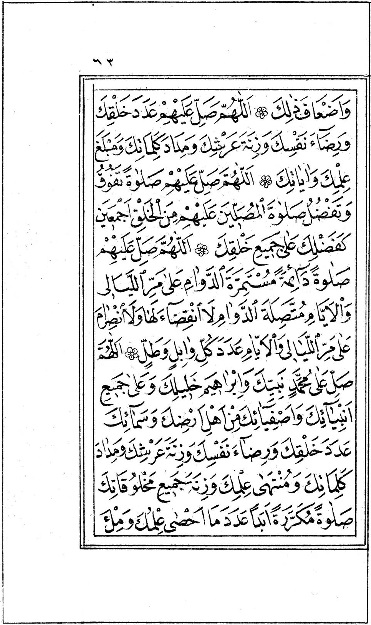 ٦٣
وَاَضْعَافَ ذٰلِكَ ۞ اَللّٰهُمَّ صَلِّ عَلَيْهِمْ عَدَدَ خَلْقِكَ
وَرِضَآءَ نَفْسِكَ وَزِنَةَ عَرْشِكَ وَمِدَادَ كَلِمَاتِكَ وَمَبْلَغَ
عِلْمِكَ وَاٰيَاتِكَ ۞ اَللّٰهُمَّ صَلِّ عَلَيْهِمْ صَلٰوةً تَفُوقُ
وَتَفْضُلُ صَلٰوةَ الْمُصَلِّينَ عَلَيْهِمْ مِنَ الْخَلْقِ اَجْمَعِينَ
كَفَضْلِكَ عَلٰى جَمِيعِ خَلْقِكَ ۞ اَللّٰهُمَّ صَلِّ عَلَيْهِمْ
صَلٰوةً دَائِمَةً مُسْتَمِرَّةَ الدَّوَامِ عَلٰى مَرِّ اللَّيَالِى
وَالْاَيَّامِ مُتَّصِلَةَ الدَّوَامِ لَا انْقِضَآءَ لَهَا وَلَا انْصِرَامَ
عَلٰى مَرِّ اللَّيَالِى وَالْاَيَّامِ عَدَدَ كُلِّ وَابِلٍ وَطَلٍّ ۞ اَللّٰهُمَّ
صَلِّ عَلٰى مُحَمَّدٍ نَبِيِّكَ وَاِبْرٰهِيمَ خَلِيلِكَ وَعَلٰى جَمِيعِ
اَنْبِيَآئِكَ وَاَصْفِيَآئِكَ مِنْ اَهْلِ اَرْضِكَ وَسَمَآئِكَ
عَدَدَ خَلْقِكَ وَرِضَآءَ نَفْسِكَ وَزِنَةَ عَرْشِكَ وَمِدَادَ
كَلِمَاتِكَ وَمُنْتَهٰى عِلْمِكَ وَزِنَةَ جَمِيعِ مَخْلُوقَاتِكَ
صَلٰوةً مُكَرَّرَةً اَبَدًا عَدَدَ مَا اَحْصٰى عِلْمُكَ وَمِلْءَ